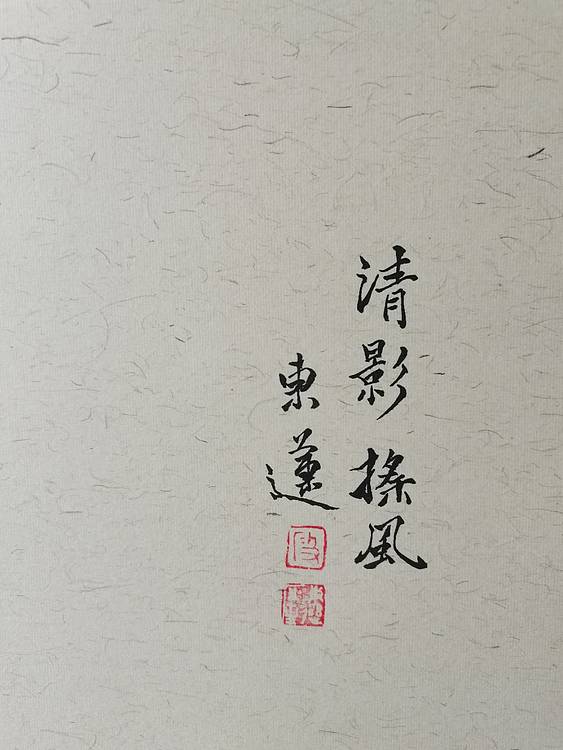 清影搖風
東蓮